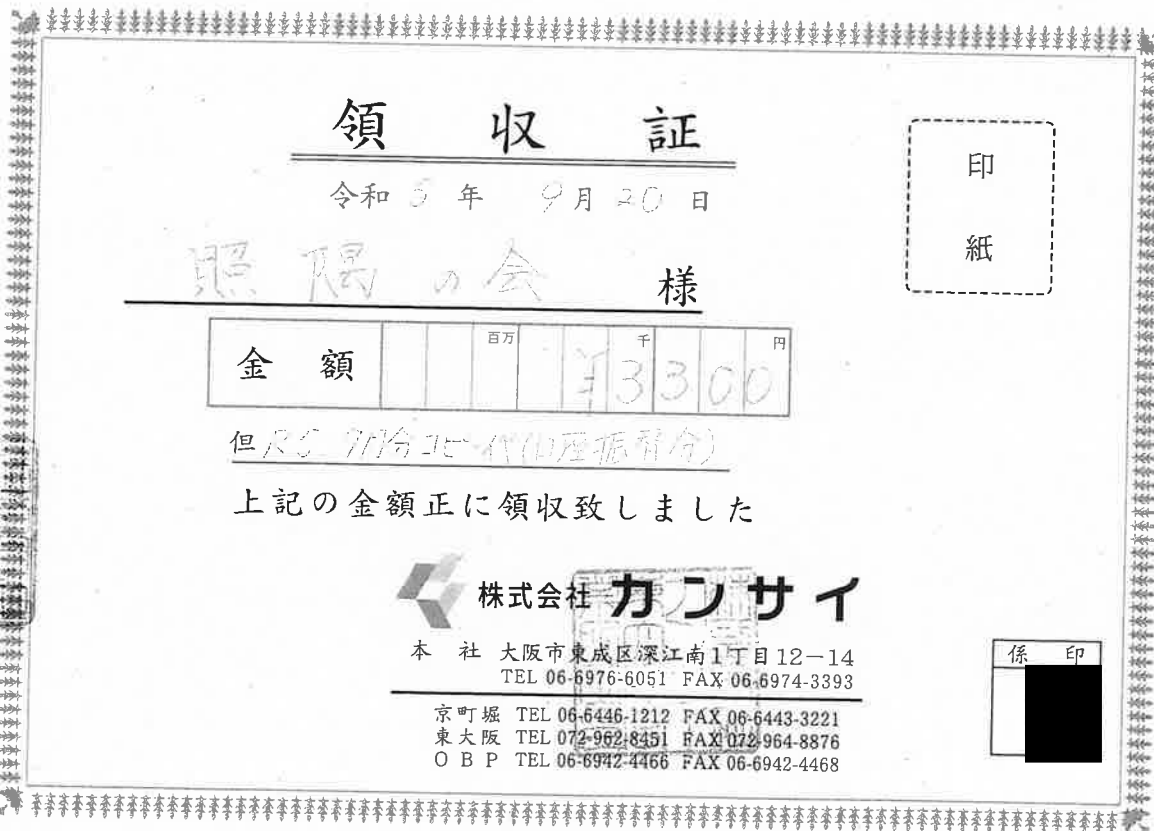 領収証
印
紙
令和5年 9月20日
照隅の会 様
金額 百万 千 円
¥3300
但 R5. 9月分コピー代(口座振替分)
上記の金額正に領収致しました
株式会社 カンサイ
本社 大阪市東成区深江南1丁目12-14
TEL 06-6976-6051 FAX 06-6974-3393
京町堀 TEL 06-6446-1212 FAX 06-6443-3221
東大阪 TEL 072-962-8451 FAX 072-964-8876
OBP TEL 06-6942-4466 FAX 06-6942-4468
係印